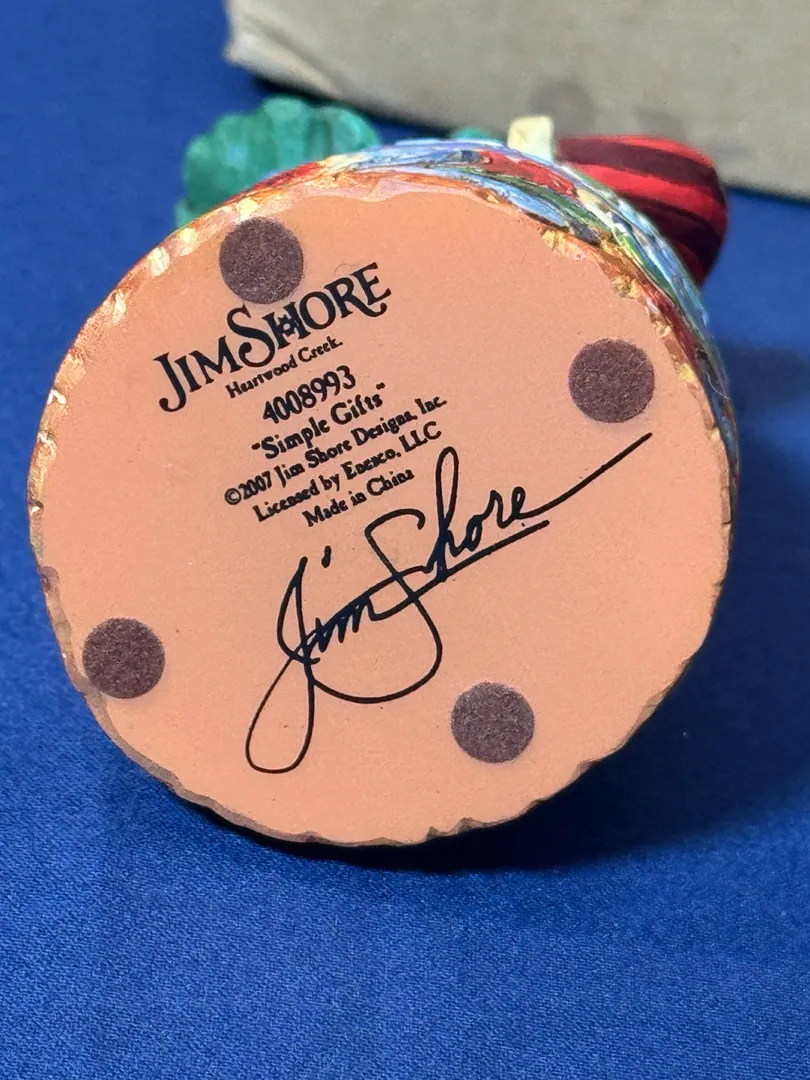 JIM SHORE
Heartwood Creek.
4008993
"Simple Gifts"
©2007 Jim Shore Designs, Inc.
Licensed by Enesco, LLC
Made in China
Jim Shore